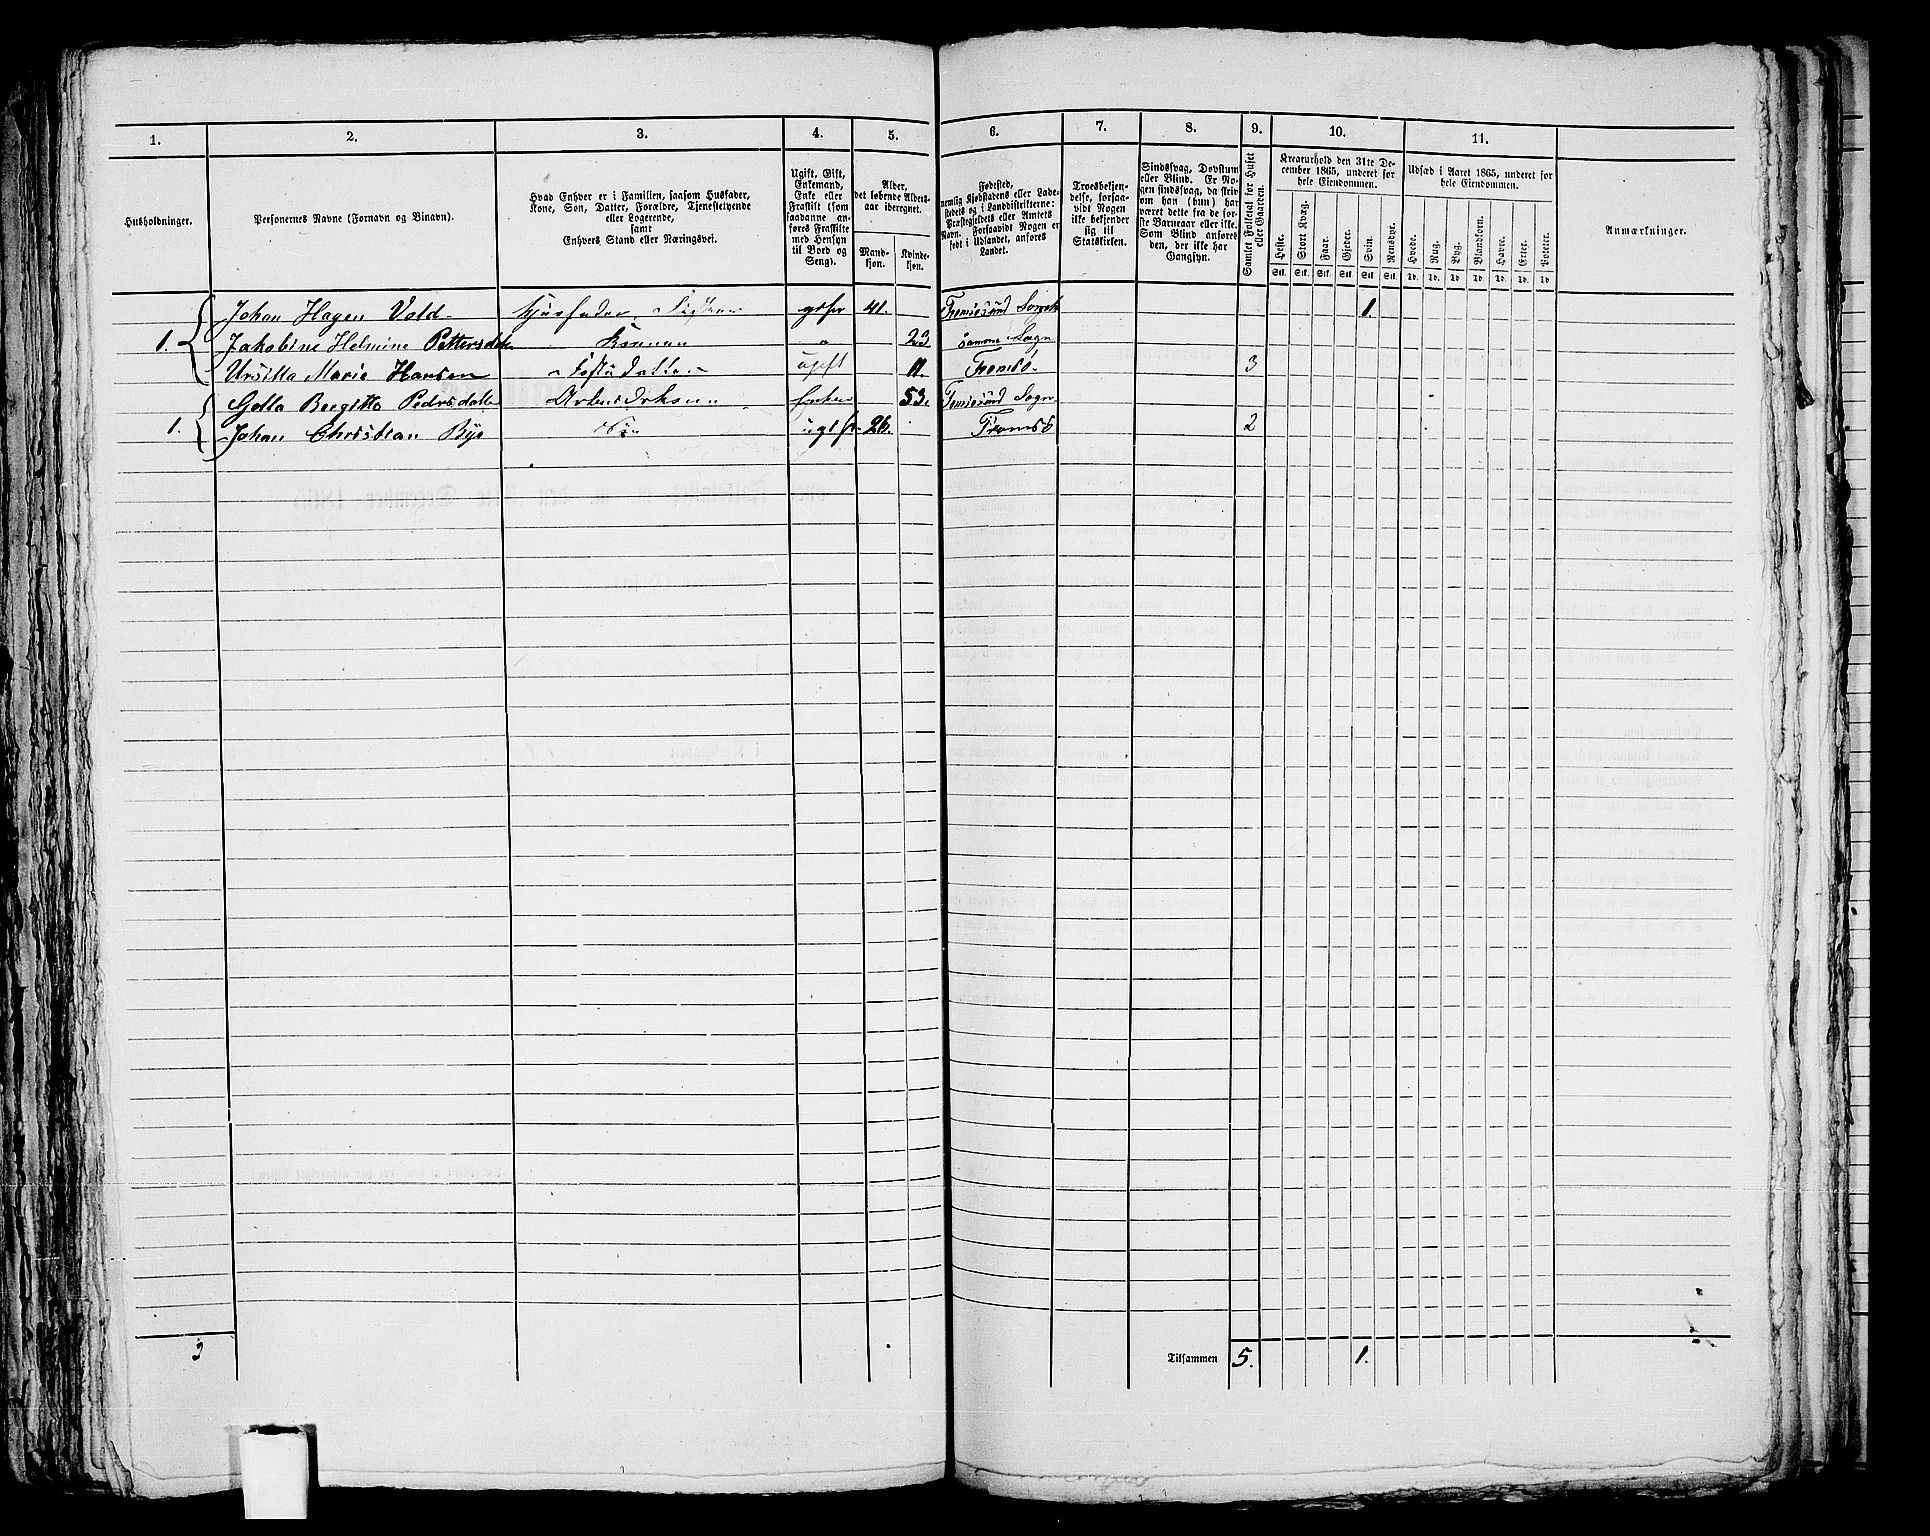 1. 2. 3. 4. 5. 6. 7. 8. 9. 10. 11.
Husholdninger.
Personernes Navne (Fornavn og Binavn).
Hvad Enhver er i Familien, saasom Husfader,
Kone, Søn, Datter, Forældre, Tjenestetyende
eller Logerende,
samt
Enhvers Stand eller Næringsvei.
Ugift, Gift,
Enkemand,
Enke eller
Fraskilt (som
saadanne an-
føres Fraskilte
med Hensyn
til Bord og
Seng).
Alder,
det løbende Alders-
aar iberegnet.
Mand-
kjøn.
Kvinde-
kjøn.
Fødested,
nemlig Kjøbstadens eller Lade-
stedets og i Landdistrikterne:
Præstegjeldets eller Amtets
Navn. Forsaavidt Nogen er
født i Udlandet, anføres
Landet.
Troesbekjen-
delse, forsaa-
vidt Nogen
ikke bekjender
sig til
Statskirken.
Sindssvag, Døvstum
eller Blind. Er No-
gen sindssvag, da skriv
om han (hun) har
været dette fra de før-
ste Barneaar eller ikke.
Som Blind anføres
den, der ikke har
Gangsyn.
Samlet Folketal for Huset
eller Gaarden.
Kreaturhold den 31te De-
cember 1865, underet for
hele Eiendommen.
Heste. Stort Kvæg. Faar. Gjeder. Svin. Rensdyr.
Stk. Stk. Stk. Stk. Stk. Stk.
Udsæd i Aaret 1865, underet for
hele Eiendommen.
Hvede. Rug. Byg. Blandkorn. Havre. Erter. Poteter.
Td. Td. Td. Td. Td. Td. Td
Anmærkninger.
Johan Hagen Vold Husfader, gift 41. Tromsøsund Sogn 1.
1. Jakobine Helmine Pettersdatter Konen " 23 samme Sogn
Ursilla Marie Hansen Datter ugift 11. Tromsö. 3
Golla Bergitta Pedersdatter Enke 53. Tromsøsund Sogn
1. Johan Christian Bye Søn ugift 26. Tromsö 2
Tilsammen 5. 1.